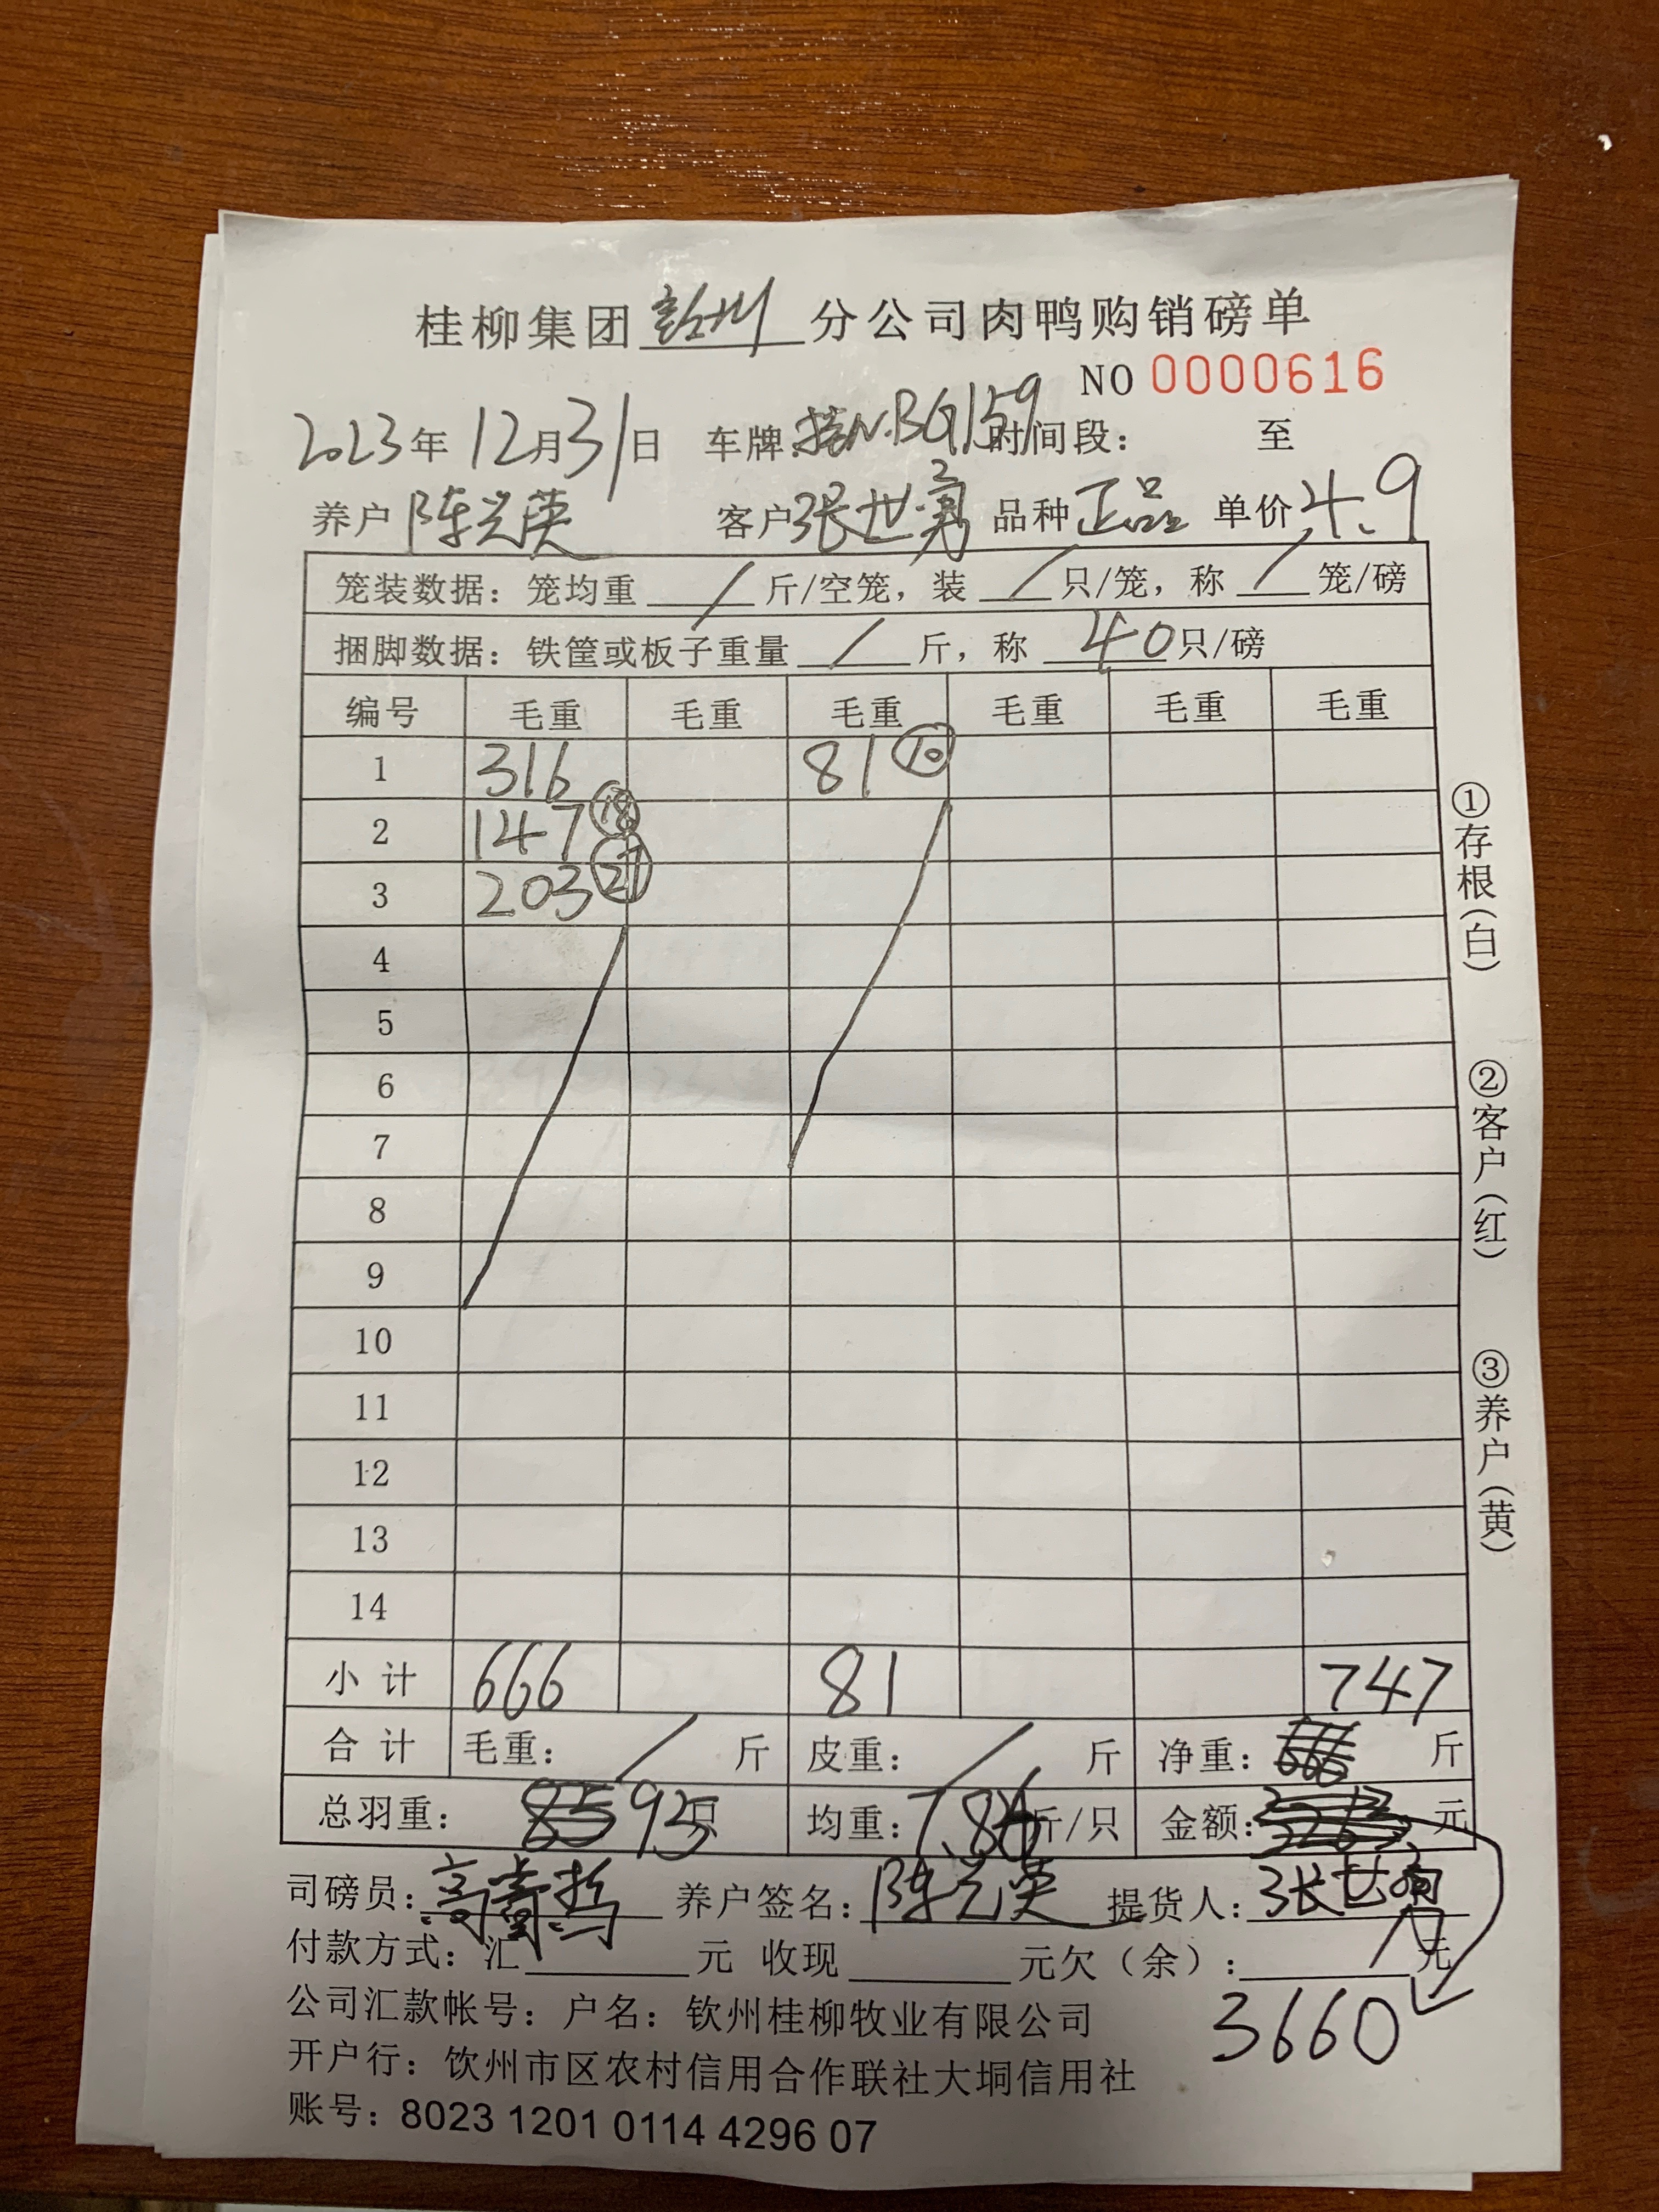 桂柳集团 分公司肉鸭购销磅单
NO 0000616
2023年 12月31日 车牌:桂N.BG159 时间段: 至
养户 陈兴英 客户 张世勇 品种 正品 单价 4.9
笼装数据：笼均重 / 斤/空笼，装 / 只/笼，称 / 笼/磅
捆脚数据：铁筐或板子重量 / 斤，称 40 只/磅
编号 毛重 毛重 毛重 毛重 毛重 毛重
1 316 81 ⑩
2 147 ⑱
3 203 ㉗
4
5
6
7
8
9
10
11
12
13
14
小计 666 81 747
合计 毛重： / 斤 皮重： / 斤 净重： 斤
总羽重： 95只 均重：7.86斤/只 金额： 元
司磅员： 养户签名：陈兴英 提货人：张世勇
付款方式：汇 元 收现 元欠（余）： 元
3660
公司汇款帐号：户名：钦州桂柳牧业有限公司
开户行：钦州市区农村信用合作联社大垌信用社
账号：8023 1201 0114 4296 07
①存根（白）
②客户（红）
③养户（黄）